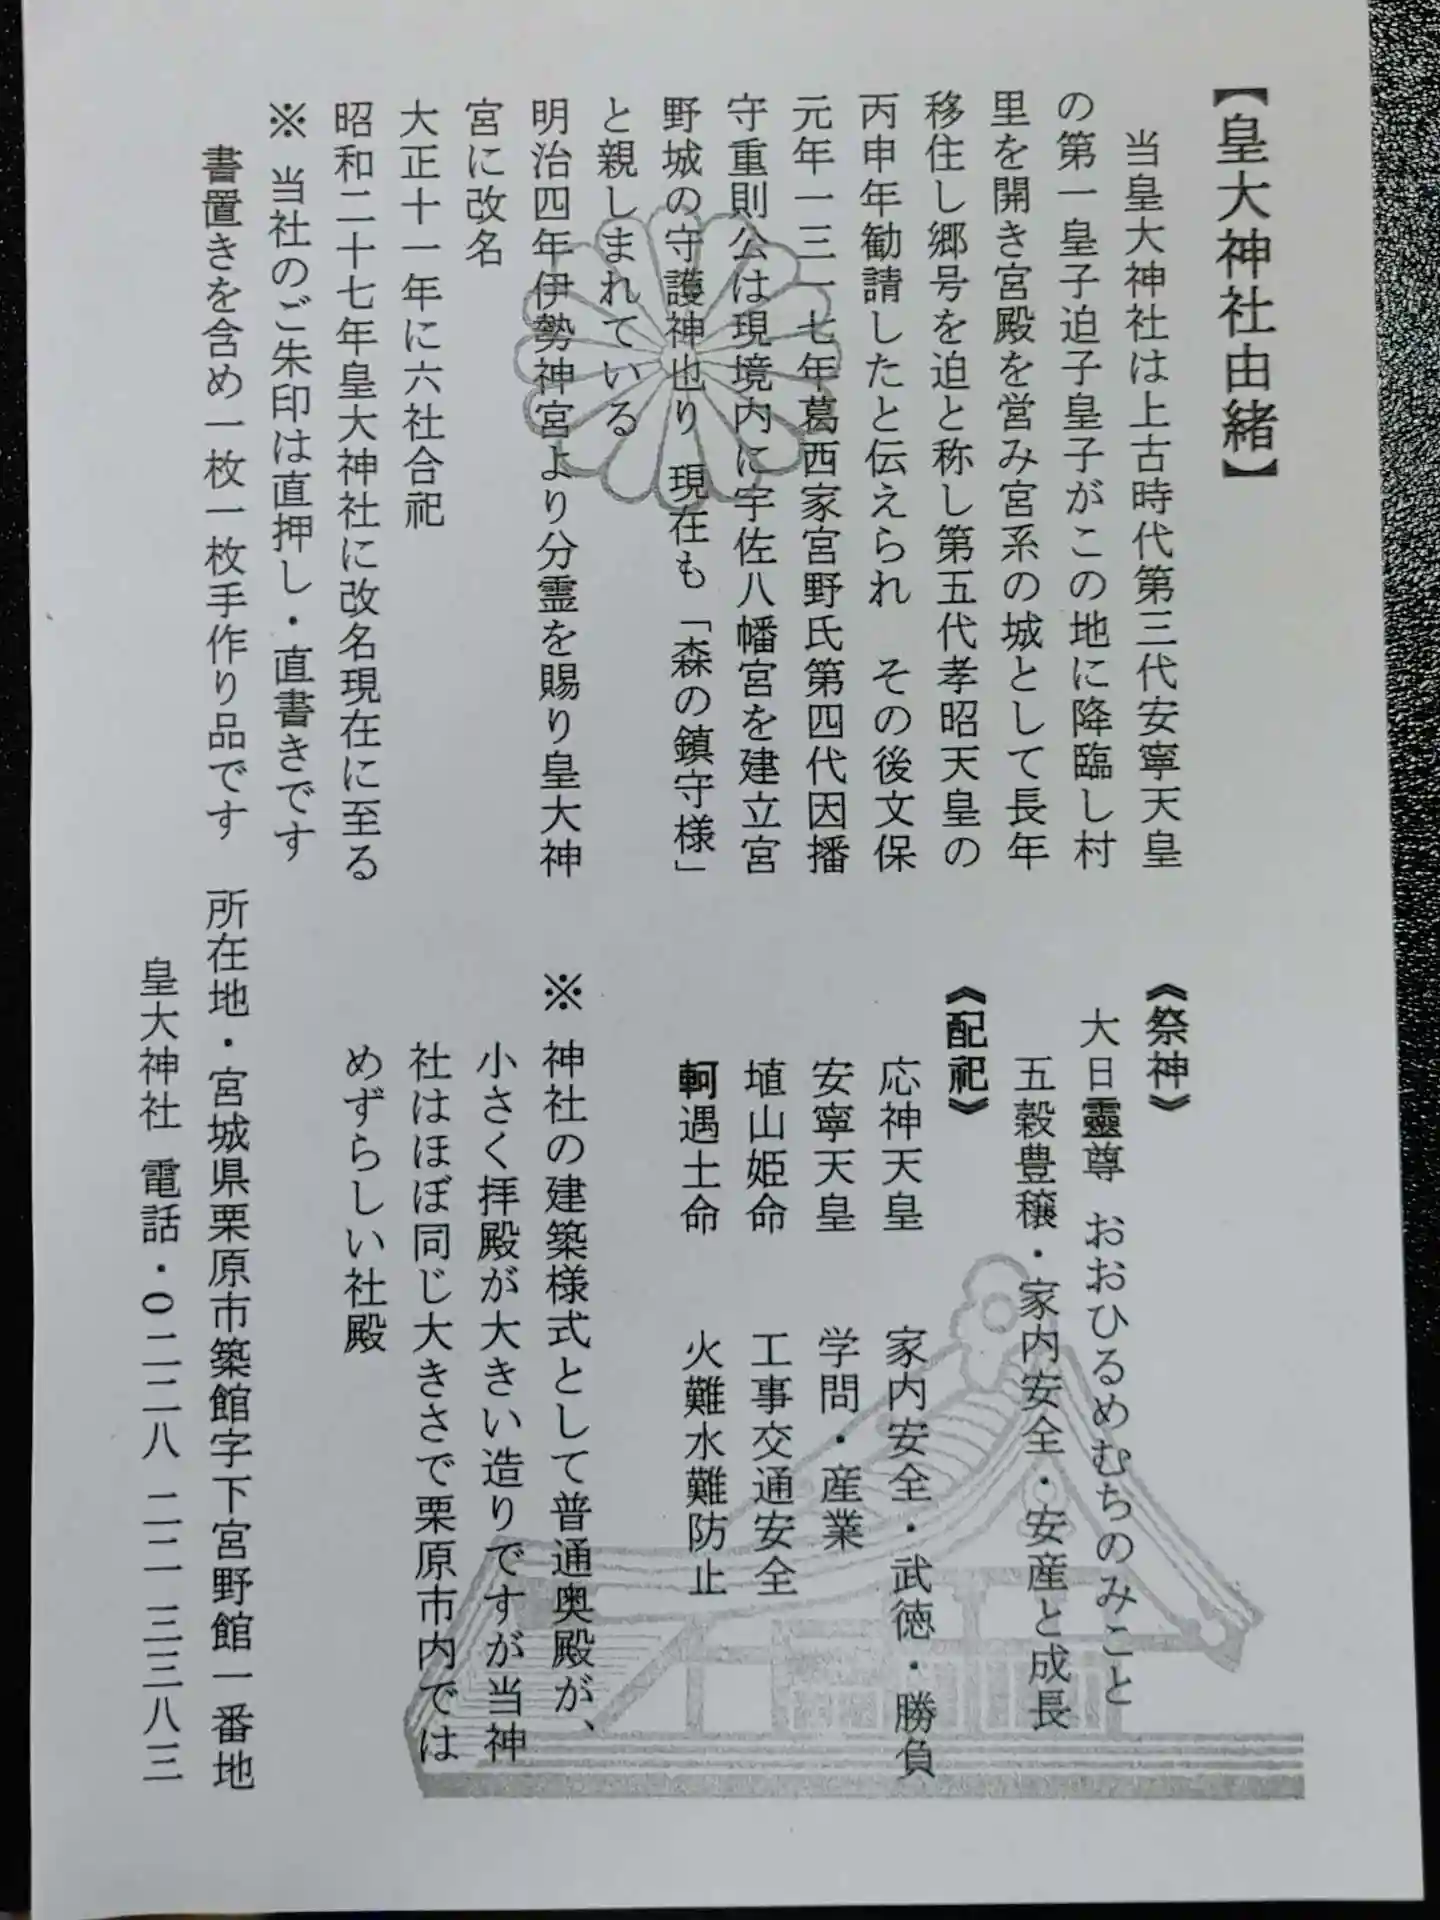 【皇大神社由緒】
当皇大神社は上古時代第三代安寧天皇
の第一皇子迫子皇子がこの地に降臨し村
里を開き宮殿を営み宮系の城として長年
移住し郷号を迫と称し第五代孝昭天皇の
丙申年勧請したと伝えられ その後文保
元年一三一七年葛西家宮野氏第四代因播
守重則公は現境内に宇佐八幡宮を建立宮
野城の守護神也り 現在も「森の鎮守様」
と親しまれている
明治四年伊勢神宮より分霊を賜り皇大神
宮に改名
大正十一年に六社合祀
昭和二十七年皇大神社に改名現在に至る
※ 当社のご朱印は直押し・直書きです
書置きを含め一枚一枚手作り品です
《祭神》
大日靈尊 おおひるめむちのみこと
五穀豊穣・家内安全・安産と成長
《配祀》
応神天皇 家内安全・武徳・勝負
安寧天皇 学問・産業
埴山姫命 工事交通安全
軻遇土命 火難水難防止
※ 神社の建築様式として普通奥殿が、
小さく拝殿が大きい造りですが当神
社はほぼ同じ大きさで栗原市内では
めずらしい社殿
所在地・宮城県栗原市築館字下宮野館一番地
皇大神社 電話・〇二二八 二二 三三八三